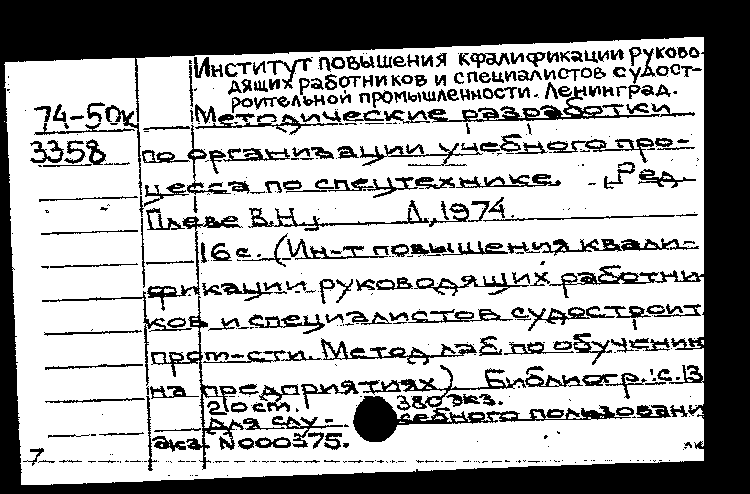 Институт повышения квалификации руково-
дящих работников и специалистов судост-
роительной промышленности. Ленинград.
74-50к Методические разработки
3358 по организации учебного про-
цесса по спецтехнике. [Ред.
Плеве В.Н.] Л., 1974.
16 с. (Ин-т повышения квали-
фикации руководящих работни
ков и специалистов судостроит.
пром-сти. Метод. лаб. по обучению
на предприятиях) Библиогр.: с. 13
2[0 ст. 380 экз.
Для слу- жебного пользовани
экз. N000375.
7